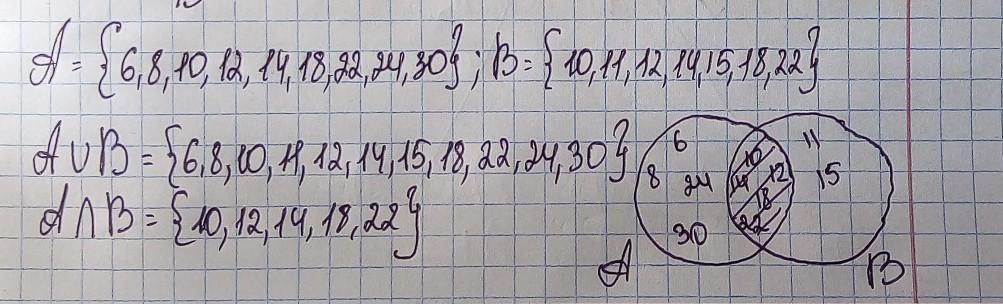 A = {6,8,10,12,14,18,22,24,30}; B = {10,11,12,14,15,18,22}
A∪B = {6,8,10,11,12,14,15,18,22,24,30}
A∩B = {10,12,14,18,22}
6
8
24
30
10
14 12
18
22
11
15
A
B